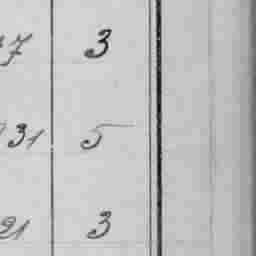 7 3
31 5
21 3